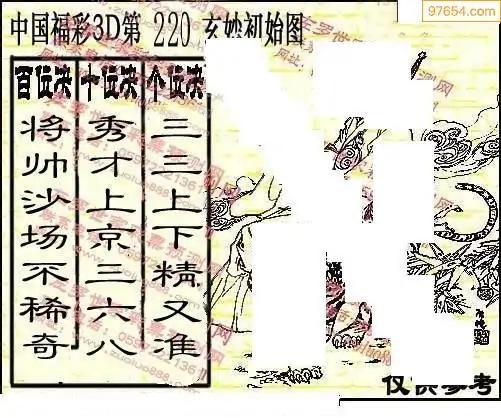 97654.com
中国福彩3D第 220 玄妙初始图
百位决 十位决 个位决
将帅沙场不稀奇
秀才上京三六八
三三上下精又准
仅供参考